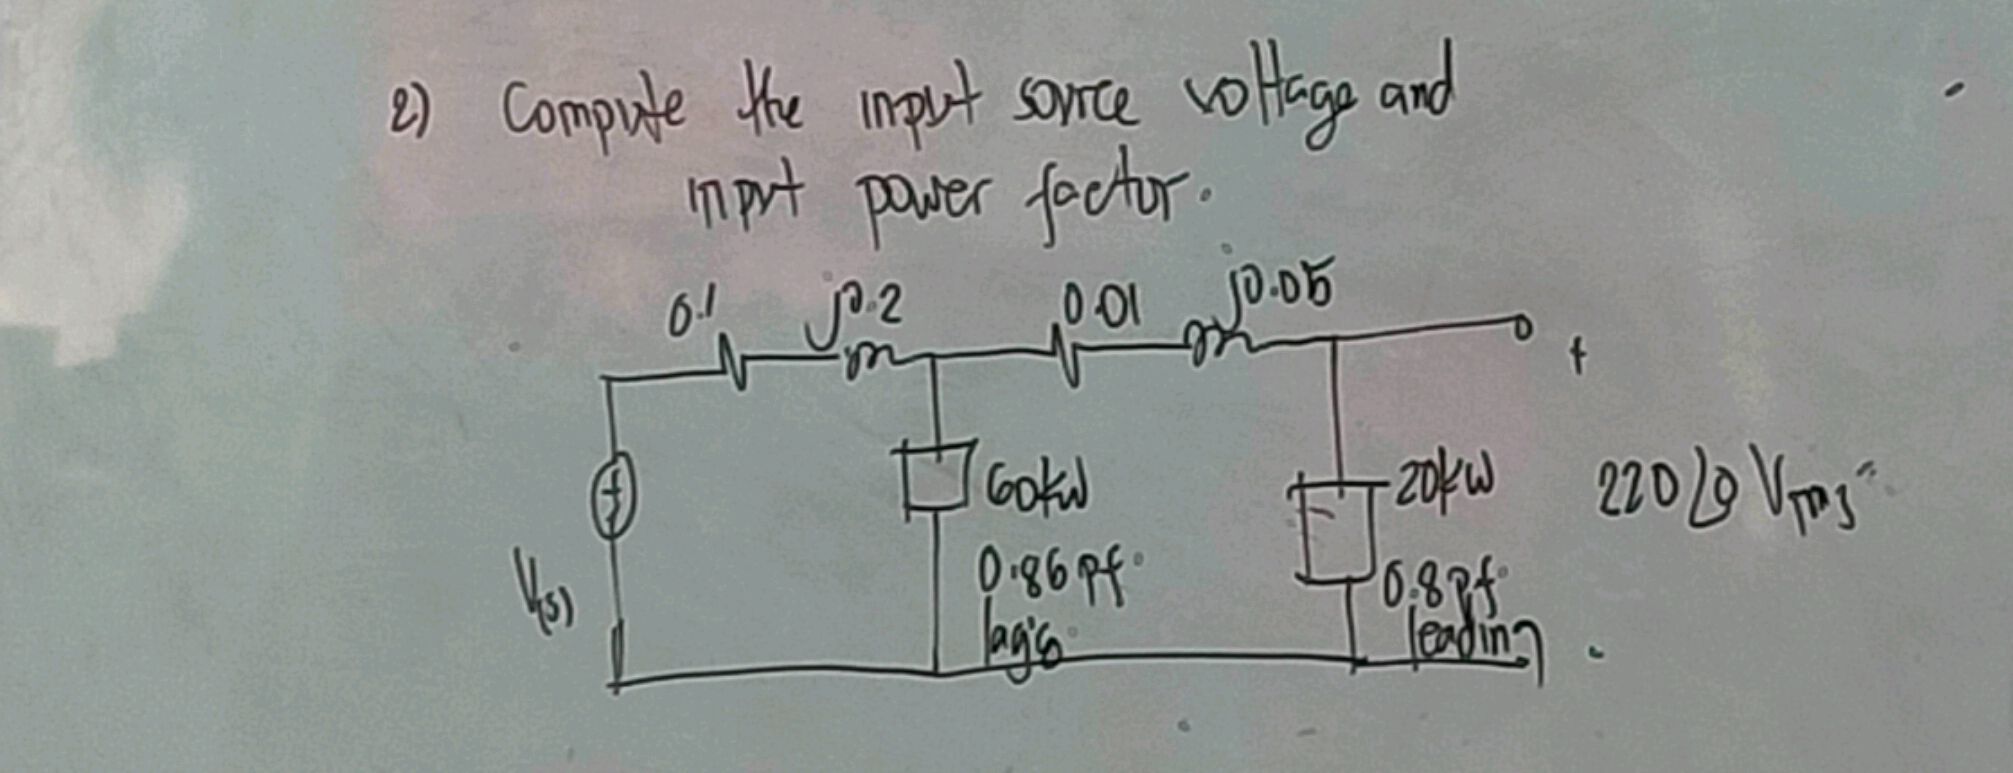 2) Compute the input source voltage and
input power factor.
0.1 j0.2 0.01 j0.05
+
60kW 20kW 220∠0 Vrms
0.86 pf. 0.8 pf.
V(s) lag's leading